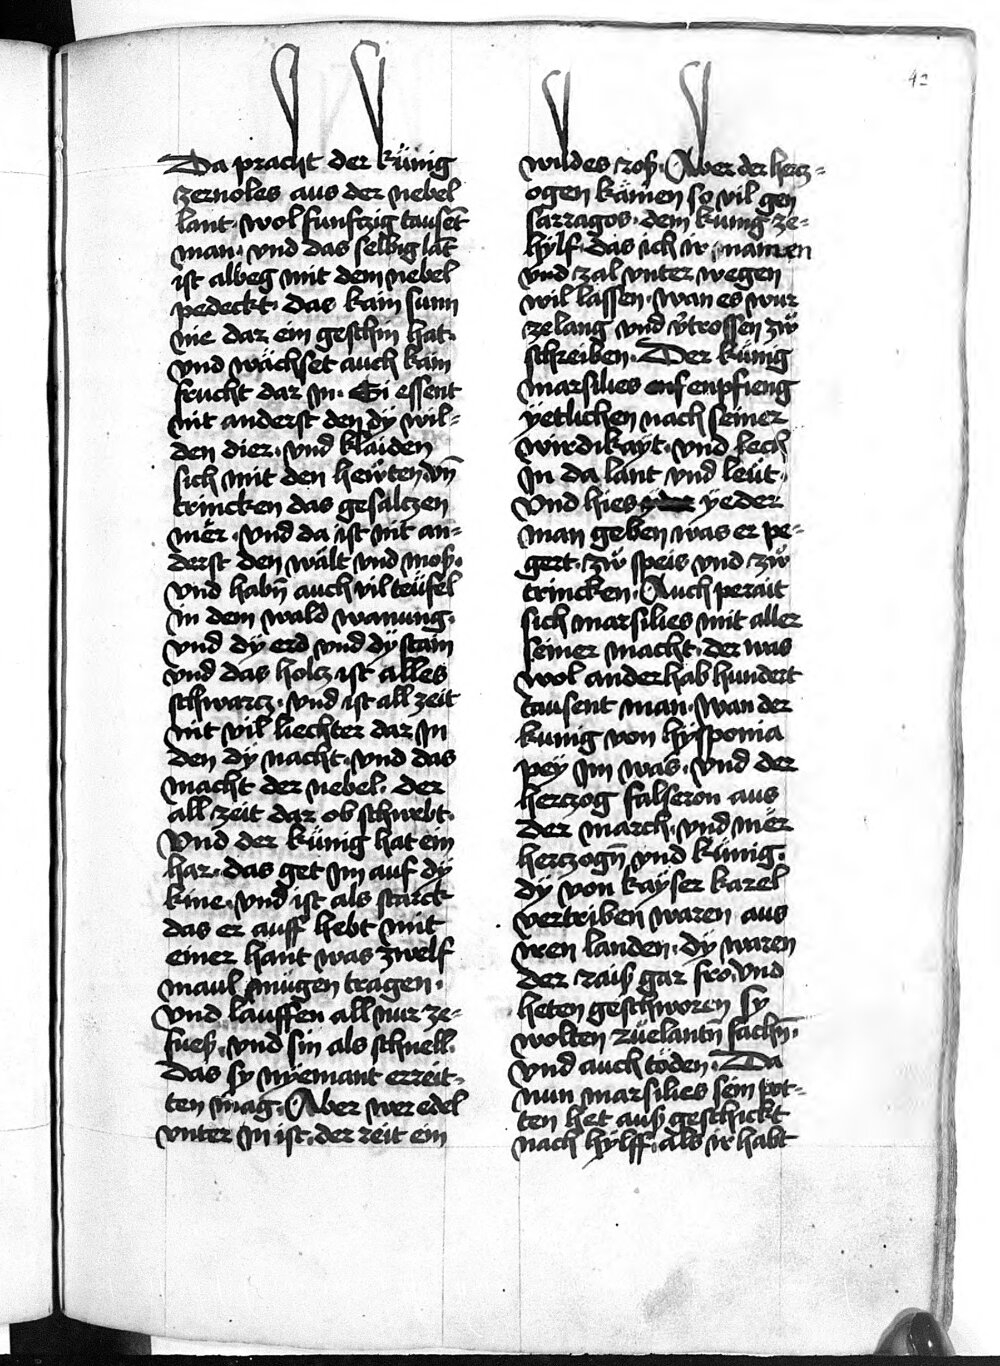 42
Da pracht der künig
zernoles aus der nebel
lant · wol funfzig tausēt
man · vnd das selbig lāt
ist albeg mit dem nebel
pedeckt · das kain sunn
nie dar ein geschin hat ·
vnd wächset auch kain
frucht dar jn · Si essent
nit anderst den dÿ wil=
den dier · vnd klaiden
sich mit den hewten vn̄
trincken das gesalczen
mër · vnd da ist nit an=
derst den wält vnd moß ·
vnd habn̄ auch vil teüfel
in dem wald wanung ·
vnd dÿ erd vnd dÿ stain
vnd das holcz ist alles
schwarcz · vnd ist all zeit
nit vil liechter dar jn
den dÿ nacht · vnd das
macht der nebel · der
all zeit dar ob schwebt ·
Vnd der künig hat ein
har · das get jm auf dÿ
knie · vnd ist als starck
das er auff hebt mit
einer hant was zwelf
maul mügen tragen ·
vnd lauffen all nur ze=
fueß · vnd sin als schnell ·
das sy nÿemant erreit=
ten mag · Aber wer edel
vnter jn ist · der reit ein
wildes roß · Aber der hercz=
ogen kämen so vil gen
sarragos · dem kunig ze=
hÿlf · das ich ir namen
vnd zal vnter wegen
wil lassen · wan es wur
ze lang vnd v̈trossen zw̆
schreiben · Der künig
marsilies enfenpfieng
ÿetlichen nach seiner
wirdikaÿt · vnd lech
jn da lant vnd leüt ·
vnd hies yeder
man geben was er pe=
gert · zw̆ speis vnd zw̆
trincken · Auch perait
sich marsilies mit aller
seiner macht · der was
wol anderhab hundert
tausent man · wan der
kunig von hÿsponia
peÿ jm was · vnd der
herczog falseron aus
der march · vnd mër
herczogn̄ vnd künig ·
dÿ von kaÿser karel
vertriben waren aus
iren landen · dÿ waren
der raiß gar fro · vnd
heten geschworen sy
wolten rüelantn̄ fachn̄ ·
vnd auch töden · Da
nun marsilies sein pot=
ten het auß geschickt
nach hÿlff · als ir habt